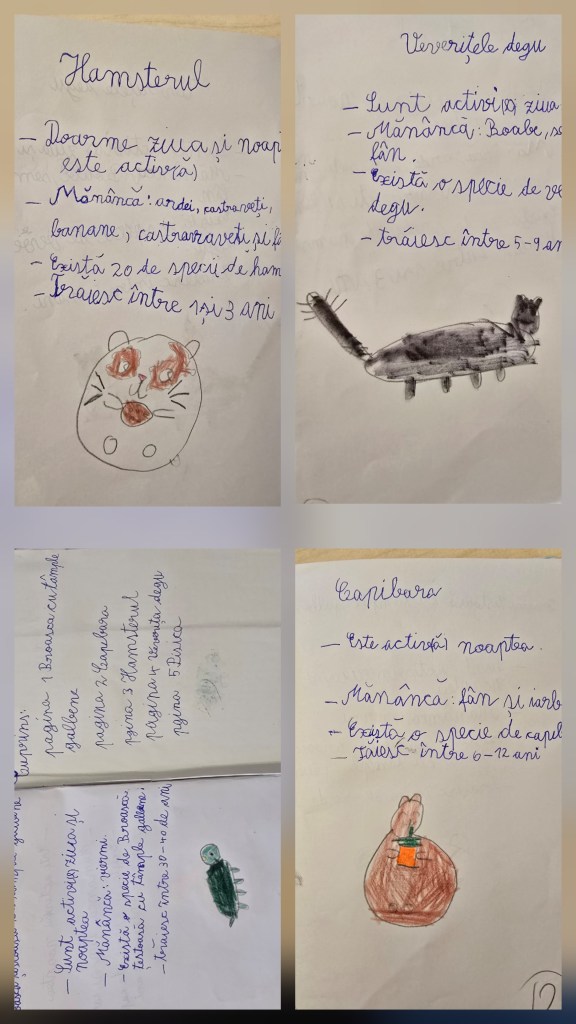 Hamsterul
- Doarme ziua și noap
este activ(ă)
- Mănâncă: ardei, castraveți,
banane, castraraveți și fâ
- Există 20 de specii de ham
- Trăiesc între 1 și 3 ani
Veverițele degu
- Sunt activi(e) ziua
- Mănâncă: Boabe, se
fân.
- Există o specie de ve
degu.
- trăiesc între 5-9 an
cuprins:
pagina 1 Broasca cu tâmple
galbene
pagina 2 Capibara
pgina 3 Hamsterul
pagina 4 Veverița degu
pgina 5 Pisica
- Sunt activi(e) ziua și
noaptea
- Mănâncă: viermi.
- Există o specie de Broască
țestoară cu tâmple galbene.
- trăiesc între 30-40 de ani
Capibara
- Este activ(ă) noaptea.
- Mănâncă: fân și iarb
- Există o specie de capib
- Tăiesc între 6-12 ani
12